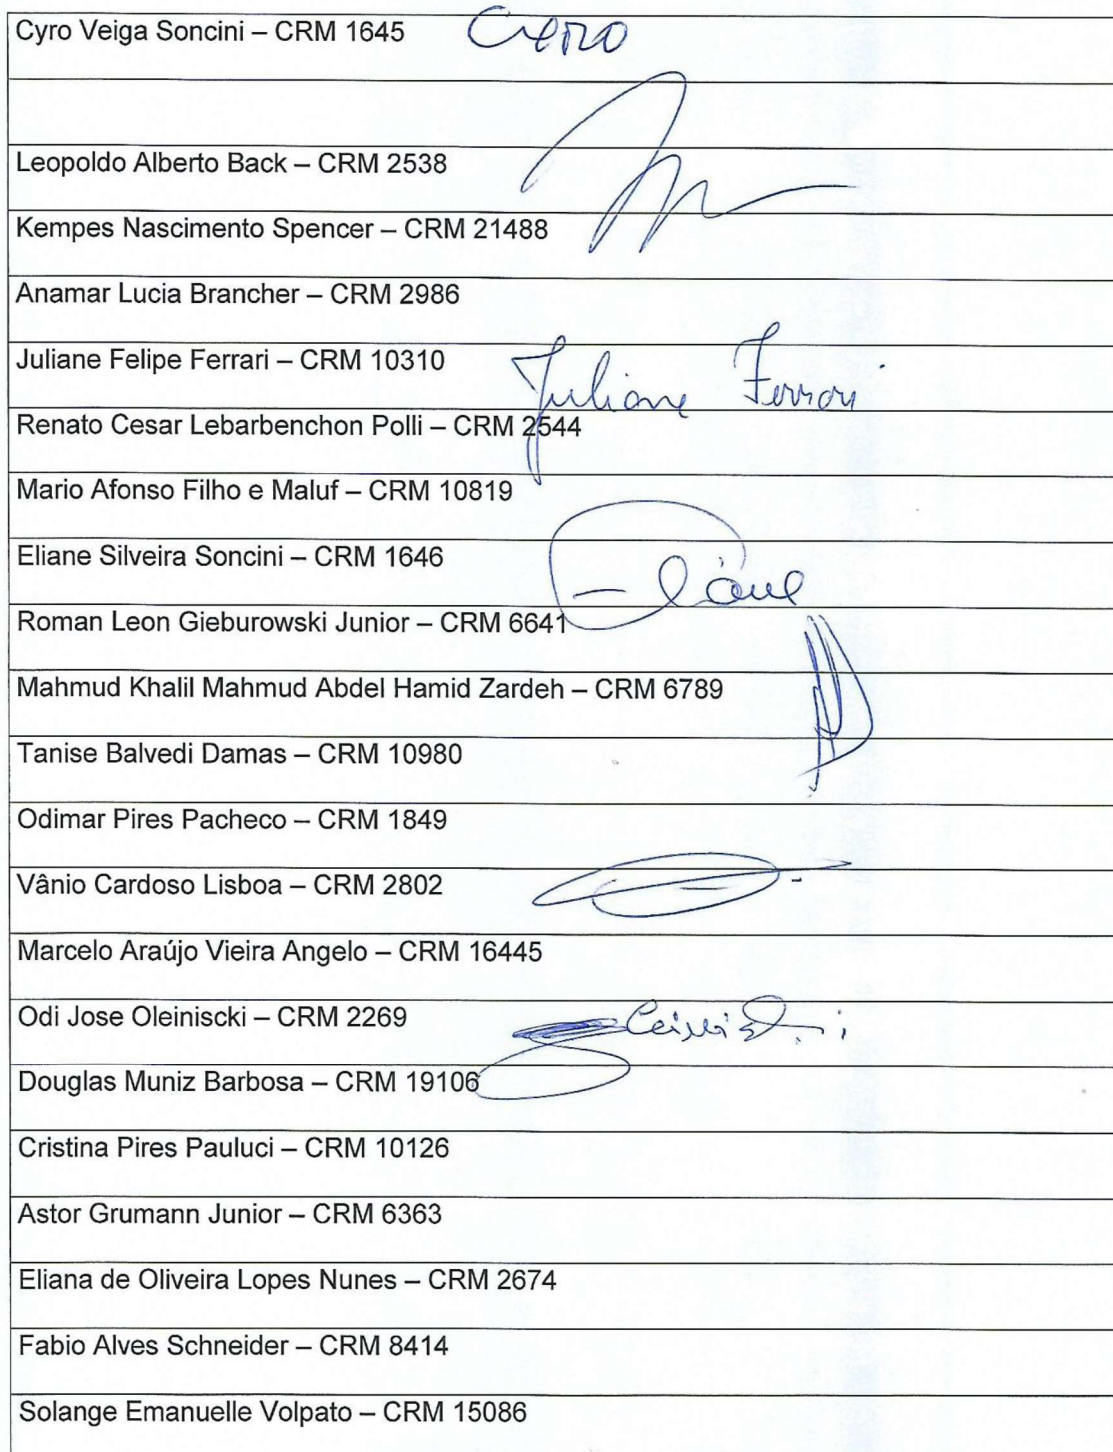 Cyro Veiga Soncini – CRM 1645
Leopoldo Alberto Back – CRM 2538
Kempes Nascimento Spencer – CRM 21488
Anamar Lucia Brancher – CRM 2986
Juliane Felipe Ferrari – CRM 10310 Juliane Ferrari
Renato Cesar Lebarbenchon Polli – CRM 2544
Mario Afonso Filho e Maluf – CRM 10819
Eliane Silveira Soncini – CRM 1646 Eliane
Roman Leon Gieburowski Junior – CRM 6641
Mahmud Khalil Mahmud Abdel Hamid Zardeh – CRM 6789
Tanise Balvedi Damas – CRM 10980
Odimar Pires Pacheco – CRM 1849
Vânio Cardoso Lisboa – CRM 2802
Marcelo Araújo Vieira Angelo – CRM 16445
Odi Jose Oleiniscki – CRM 2269
Douglas Muniz Barbosa – CRM 19106
Cristina Pires Pauluci – CRM 10126
Astor Grumann Junior – CRM 6363
Eliana de Oliveira Lopes Nunes – CRM 2674
Fabio Alves Schneider – CRM 8414
Solange Emanuelle Volpato – CRM 15086